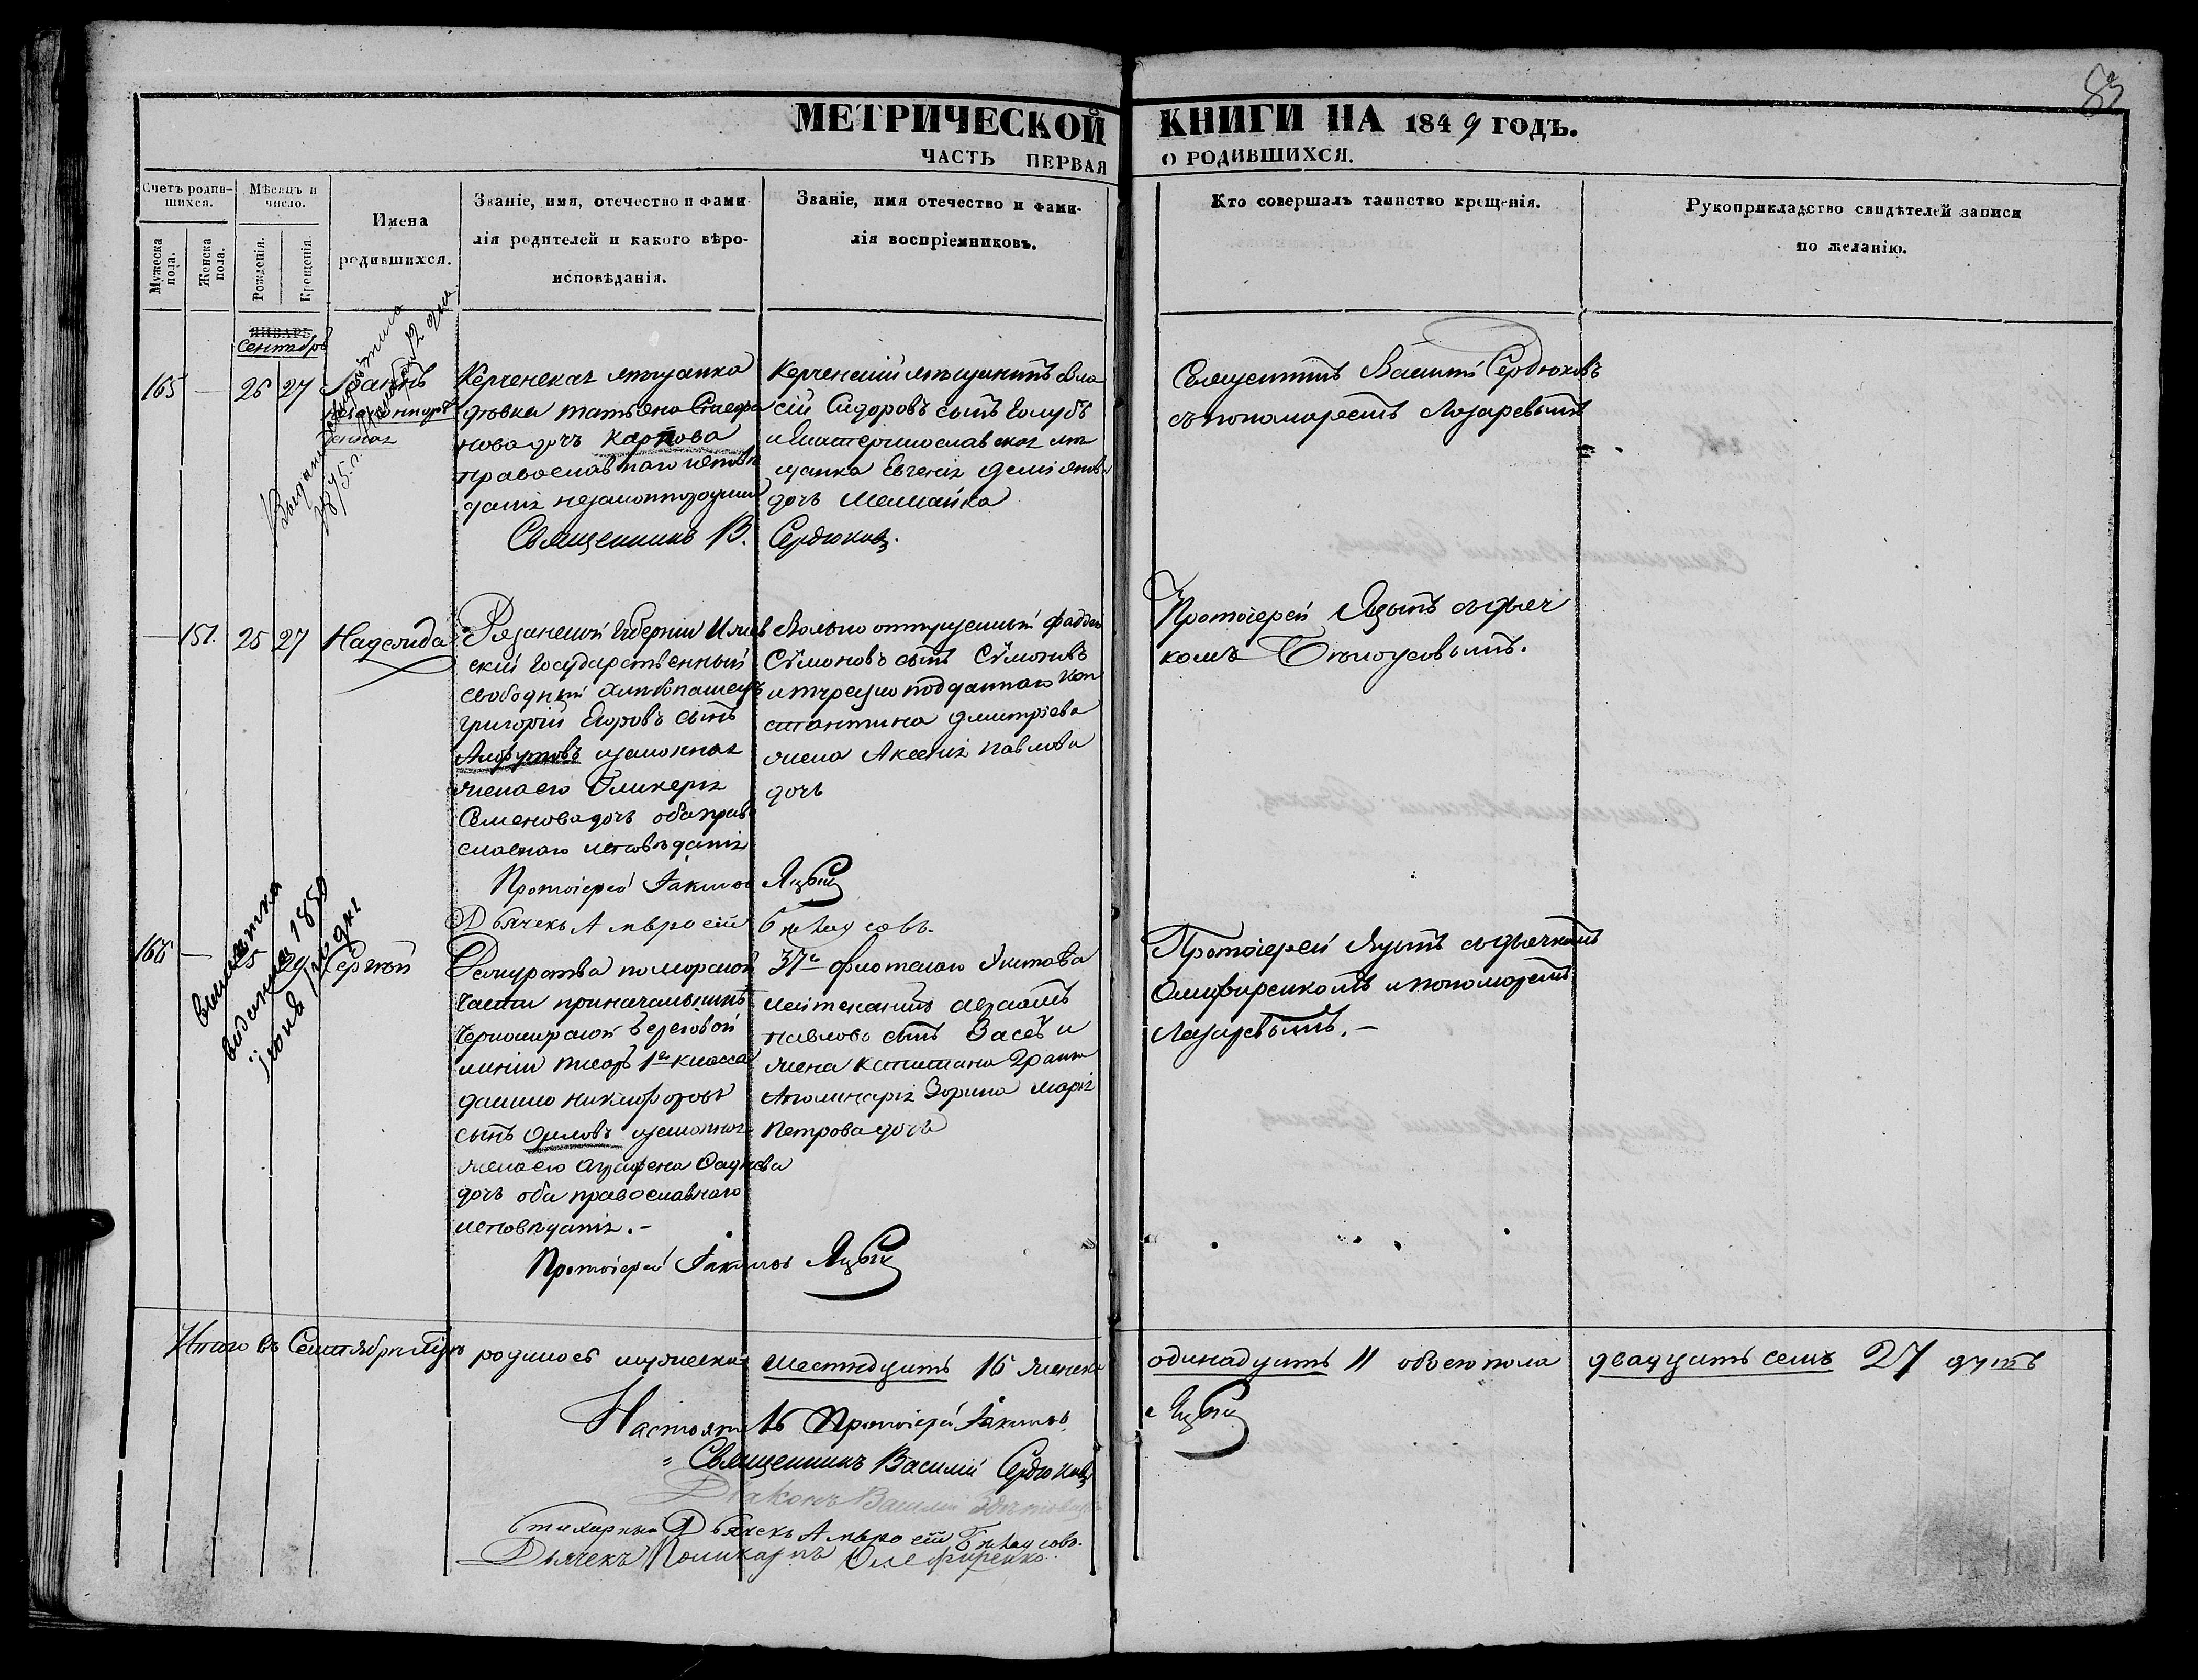 83
МЕТРИЧЕСКОЙ КНИГИ НА 1849 ГОДЪ.
ЧАСТЬ ПЕРВАЯ О РОДИВШИХСЯ.
Счетъ родившихся.
Мужеска пола.
Женска пола.
Мѣсяцъ и число.
Рожденія.
Крещенія.
Имена
родившихся.
Званіе, имя, отечество и фами-
лія родителей и какого вѣро-
исповѣданія.
Званіе, имя отечество и фами-
лія воспріемниковъ.
Кто совершалъ таинство крещенія.
Рукоприкладство свидѣтелей записи
по желанію.
ЯНВАРЬ
Сентябрь
165 — 26 27 Іоаннъ
незаконнорож
денный
1875 г.
Керченская мѣщанка
дѣвка Татьяна Стефа
нова дочь Карпова
православнаго исповѣ
данія незаконнорожденный
Священникъ В. Сердюковъ.
Керченскій мѣщанинъ Вла
сій Сидоровъ сынъ Голубъ
и Екатеринославская мѣ
щанка Евгенія Деміянова
дочь
Священникъ Василій Сердюковъ
съ пономаремъ Лазаревымъ
— 151. 25 27 Надежда
Рязанской Губерніи
скій Государственный
свободный хлѣбопашецъ
Григорій Егоровъ сынъ
законная
жена его Гликерія
Семенова дочь оба право
славнаго исповѣданія
Протоіерей Іакимъ Яцынъ
Дьячекъ Амвросій Бѣлоусовъ.
Вольно отпущенный Фаддей
Сѵмоновъ сынъ Сѵмоновъ
и турецко подданнаго Кон
стантина Дмитріева
жена Аксенія Павлова
дочь
Протоіерей Яцынъ съ дьяч
комъ Бѣлоусовымъ.
166 — 25 29 Сергѣй
выписка
выдана 1850
Дежурства по морской
части при начальникѣ
Черноморской береговой
линіи писарь 1го класса
Данило Никифоровъ
сынъ Орловъ законная
жена его Аграфена
дочь оба православнаго
исповѣданія. —
Протоіерей Іакимъ Яцынъ
37го флотскаго Экипажа
лейтенантъ Авраамъ
Павловъ сынъ
жена капитана
Зорина Марія
Петрова дочь
Протоіерей Яцынъ съ дьячкомъ
Олефиренкомъ и пономаремъ
Лазаревымъ. —
Итого въ Сентябрѣ мѣсяцѣ родилось мужеска шестнадцать 16 женска одинадцать 11 обоего пола двадцать семь 27 душъ
Настоятель Протоіерей Іакимъ Яцынъ
Священникъ Василій Сердюковъ
Діаконъ Василій
Стихарный Дьячекъ Амвросій Бѣлоусовъ.
Дьячекъ Поликарпъ Олефиренко.